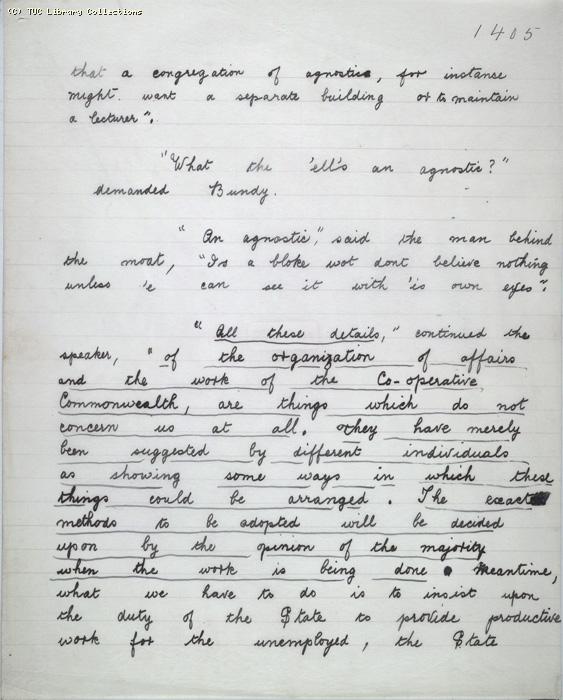 (c) TUC Library Collections
1405
that a congregation of agnostics, for instance
might want a separate building or to maintain
a lecturer".
"What the 'ell's an agnostic?"
demanded Bundy.
"An agnostic," said the man behind
the moat, "Is a bloke wot dont believe nothing
unless 'e can see it with 'is own eyes".
"All these details," continued the
speaker, "of the organization of affairs
and the work of the Co-operative
Commonwealth, are things which do not
concern us at all. They have merely
been suggested by different individuals
as showing some ways in which these
things could be arranged. The exact
methods to be adopted will be decided
upon by the opinion of the majority
when the work is being done. Meantime,
what we have to do is to insist upon
the duty of the State to provide productive
work for the unemployed, the State